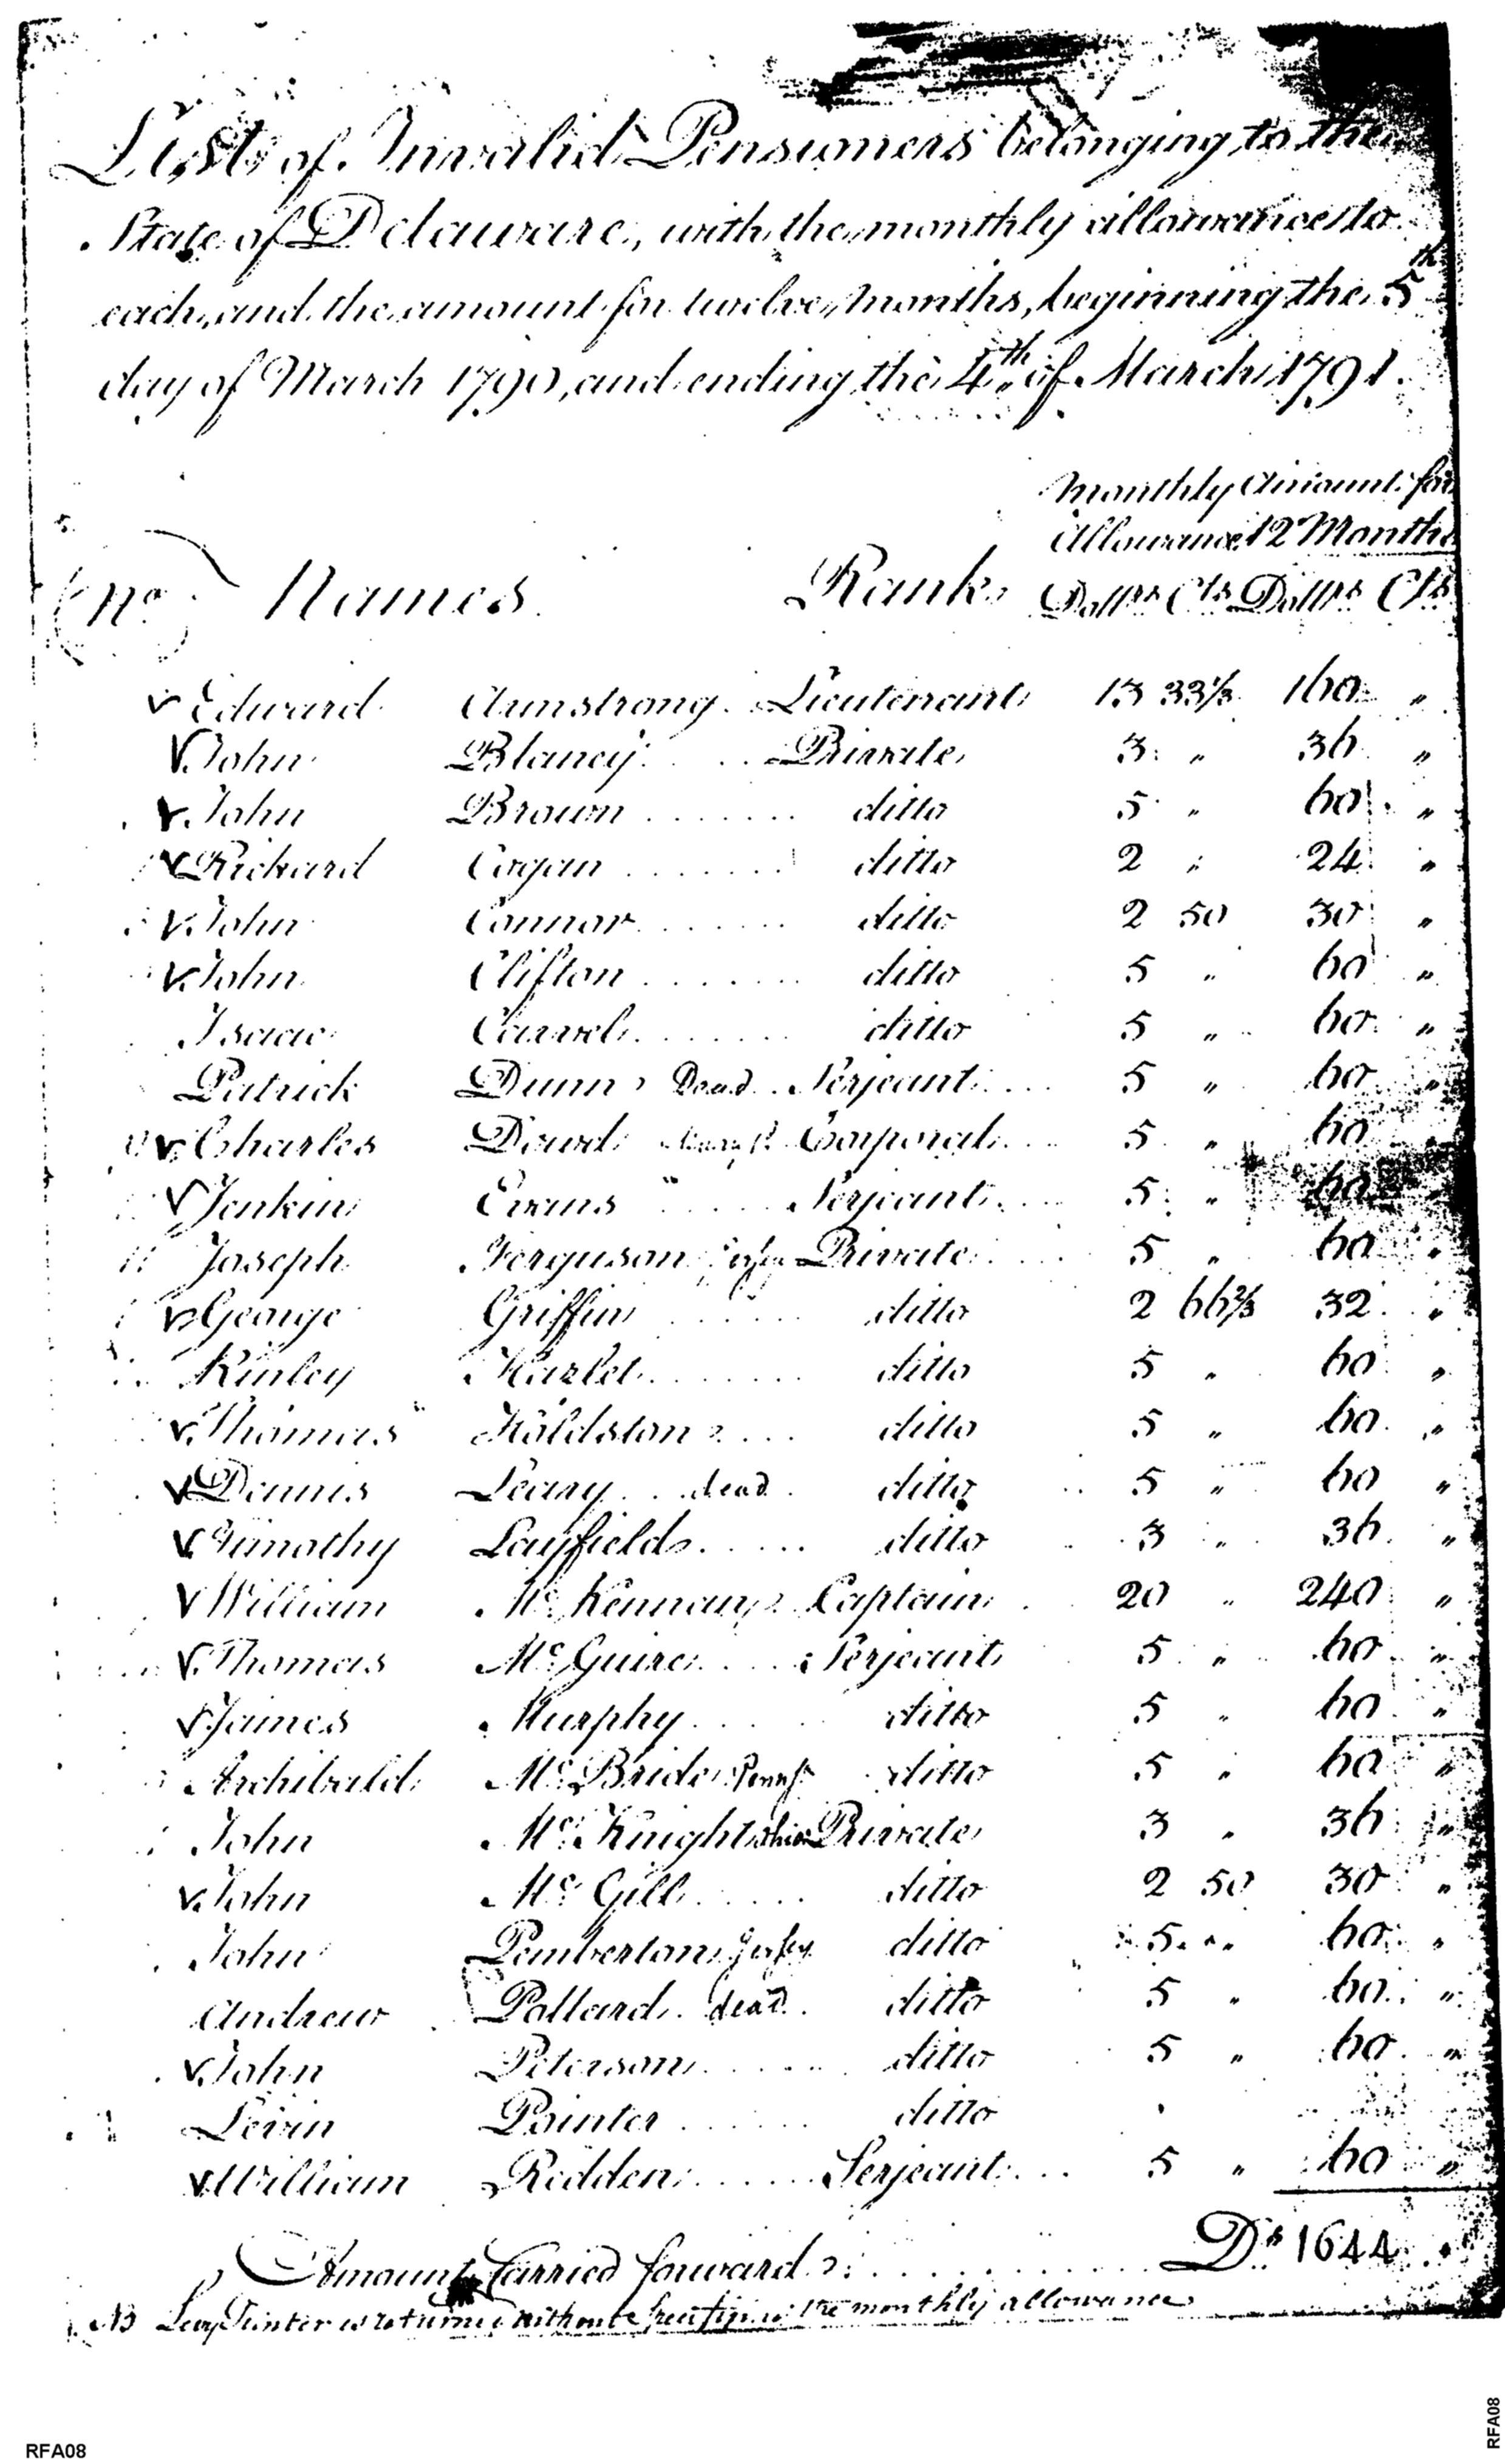 List of Invalid Pensioners belonging to the
State of Delaware, with the monthly allowance to
each, and the amount for twelve months, beginning the 5th
day of March 1790, and ending the 4th of March 1791.
Monthly Amount for
Allowance 12 Months
No Names Rank Dollrs Cts Dollrs Cts
Edward Armstrong Lieutenant 13 33⅓ 160 "
John Blaney Private 3 " 36 "
John Brown ditto 5 " 60 "
Richard Cogan ditto 2 " 24 "
John Connor ditto 2 50 30 "
John Clifton ditto 5 " 60 "
Isaac Carvel ditto 5 " 60 "
Patrick Dunn Dead Serjeant 5 " 60 "
Charles Dowd Corporal 5 " 60
Jenkin Evans Serjeant 5 " 60
Joseph Ferguson Private 5 " 60 "
George Griffin ditto 2 66⅔ 32 "
Kinley Hazlet ditto 5 " 60 "
Thomas Holdston ditto 5 " 60 "
Dennis Leary dead ditto 5 " 60 "
Timothy Layfield ditto 3 " 36 "
William Mc Kennan Captain 20 " 240 "
Thomas Mc Guire Serjeant 5 " 60 "
James Murphy ditto 5 " 60 "
Archibald Mc Bride ditto 5 " 60 "
John Mc Knight Private 3 " 36 "
John Mc Gill ditto 2 50 30 "
John Pemberton Jersey ditto 5 " 60 "
Andrew Pollard dead ditto 5 " 60 "
John Peterson ditto 5 " 60 "
Levin Painter ditto
William Redden Serjeant 5 " 60 "
Amount Carried forward Ds 1644
NB Painter is returned without the monthly allowance
RFA08
RFA08